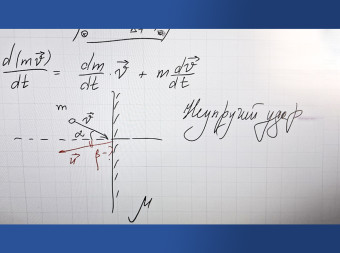 d(mv⃗)/dt = dm/dt · v⃗ + m dv⃗/dt
Неупругий удар
m
v⃗
α
u⃗ β - ?
M